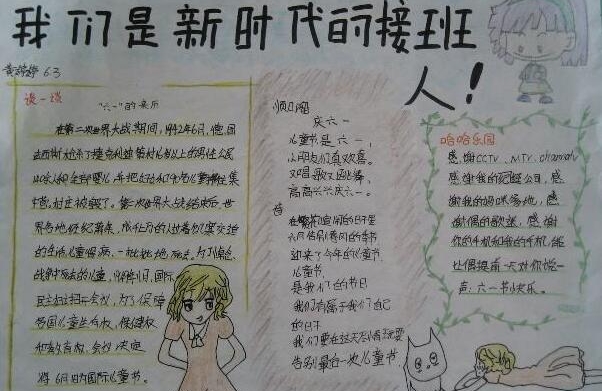 我们是新时代的接班
人!
6.3
谈一谈
"六一"的来历
在第二次世界大战期间,1942年6月,德国
法西斯枪杀了捷克利迪策村16岁以上的男性公民
140余人和全部婴儿,并把妇女和90名儿童押往集
中营,村庄被毁了。第二次世界大战结束后,世
界各地经济萧条,成千上万的人过着饥寒交迫
的生活儿童得病,一批批地死去。为了悼念
战争中死去的儿童,1949年11月,国际
民主妇联召开会议,为了保障
各国儿童生存权,保健权
和教育权,会议决定
将6月1日为国际儿童节。
顺口溜
庆六一
儿童节是六一,
小朋友们真欢喜。
又唱歌又跳舞,
高高兴兴庆六一。
在繁花喧闹的日子里
六月
迎来了今年的儿童节
儿童节,
是我们的节日
我们有属于我们自己
的日子
我们要在这天尽情玩耍
告别最后一次儿童节
哈哈乐园
感谢CCTV、MTV、channelV
感谢我的经纪公司,感
谢我的妈咪爹地,感
谢偶的歌迷,感谢
你的手机和我的手机,能
让偶提前一天对你说一
声:六一节快乐。